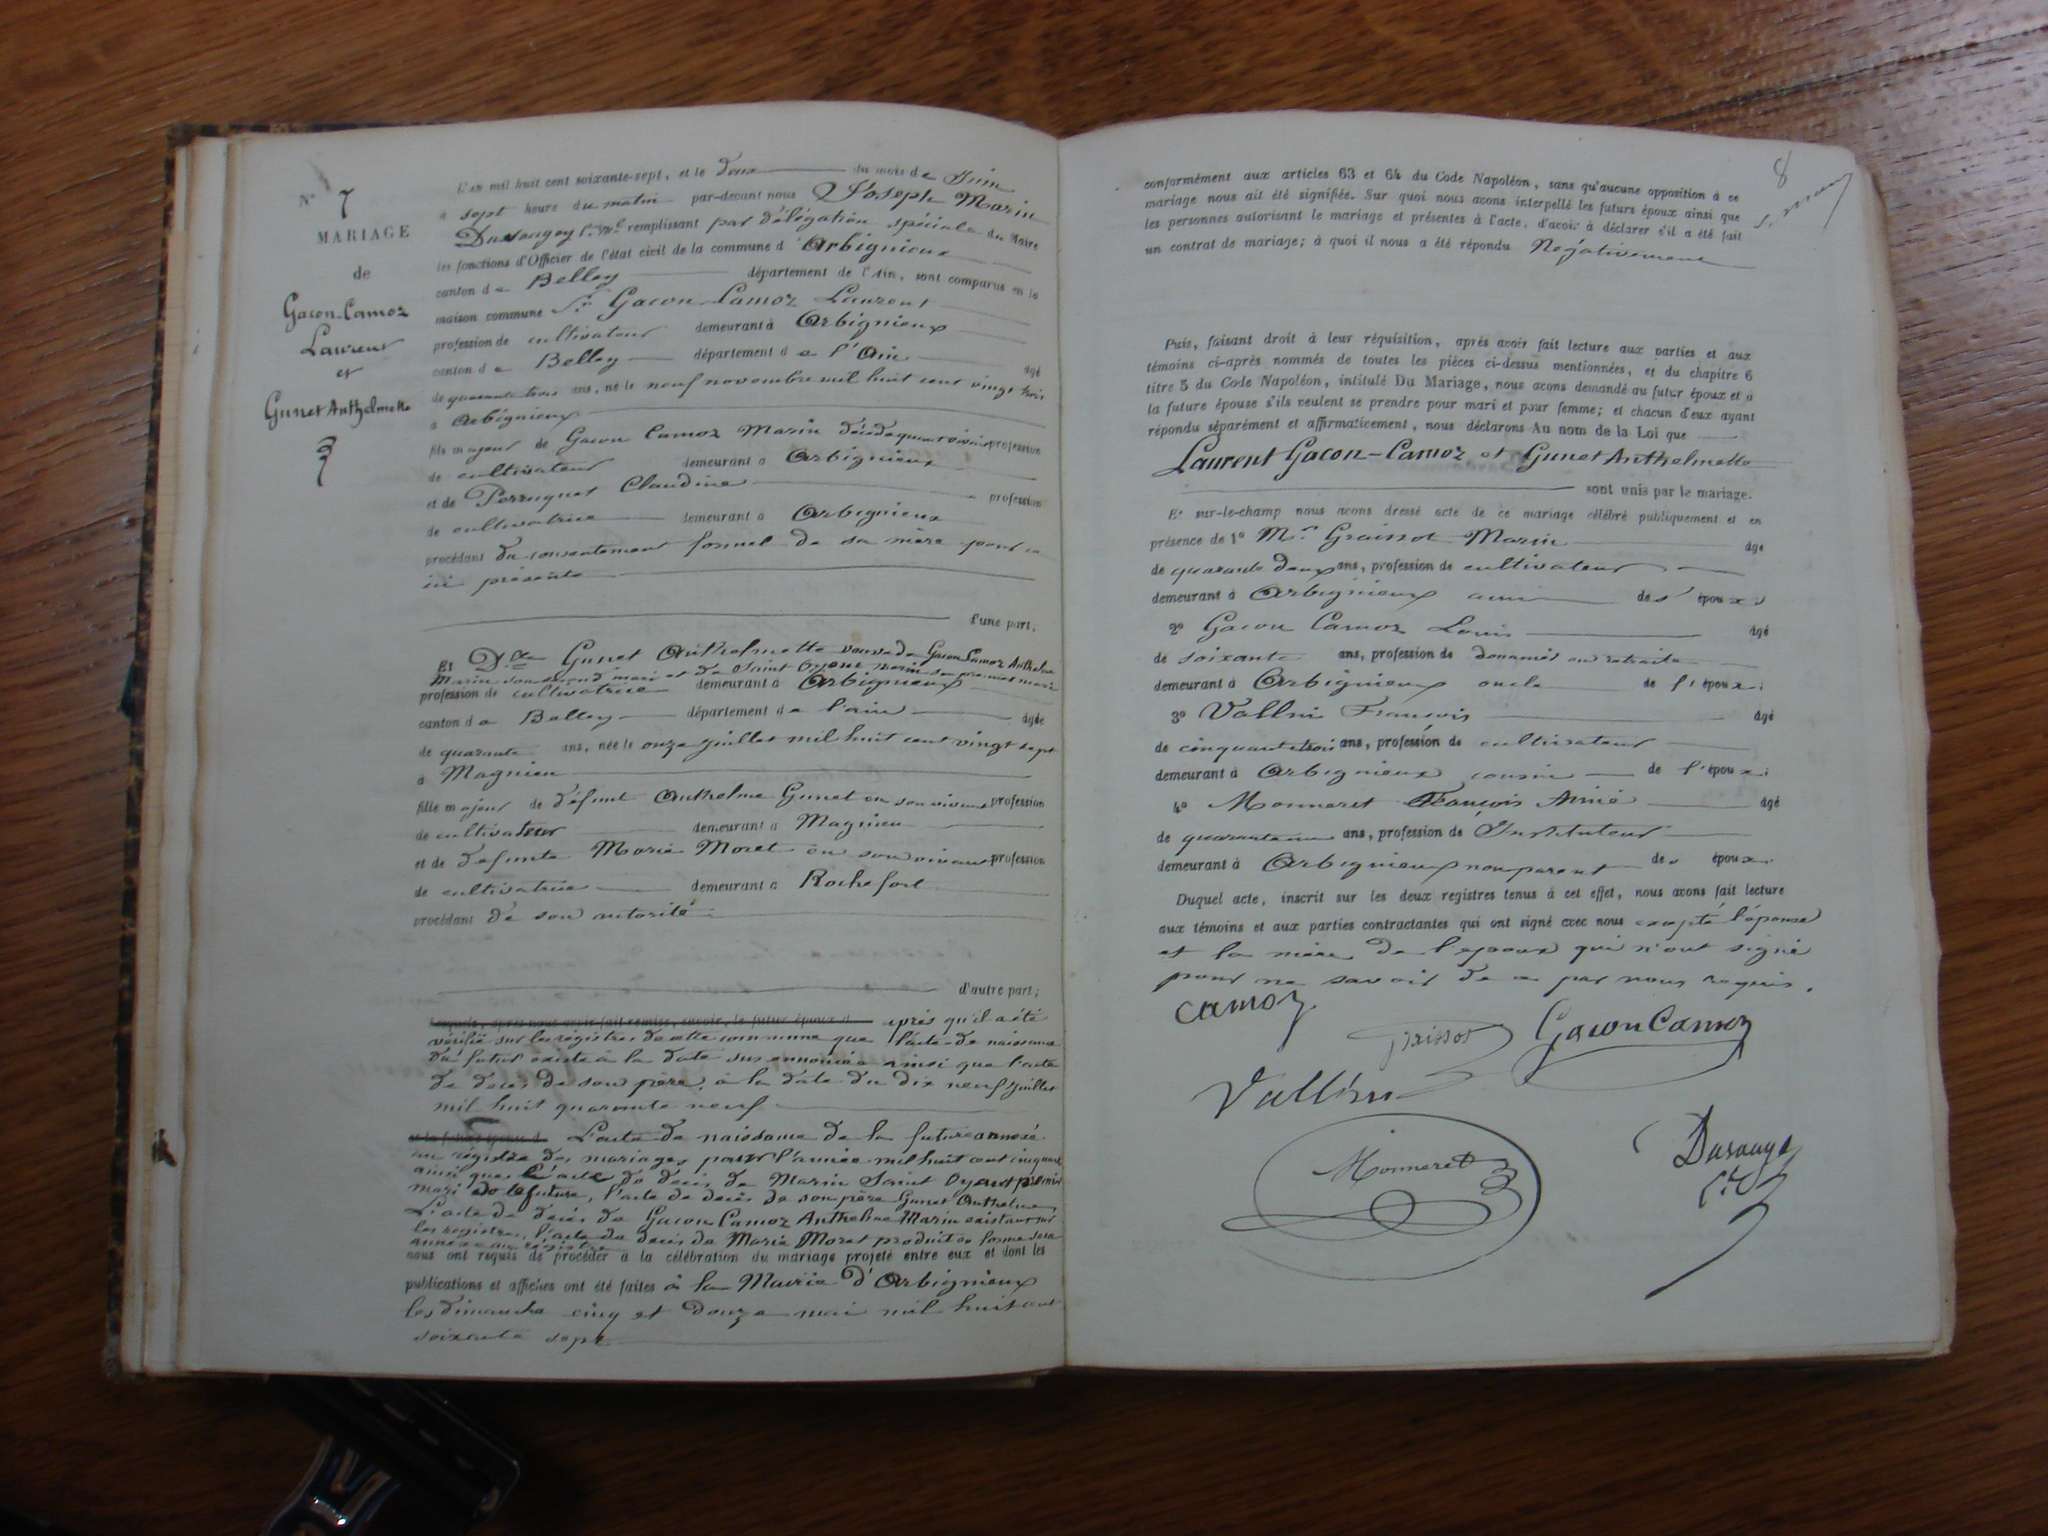 N° 7
MARIAGE
de
Gacon-Camoz
Laurent
et
Gunet Anthelmette
L'an mil huit cent soixante-sept, et le deux du mois de Juin
à sept heure du matin par-devant nous Joseph Marin
remplissant par délégation spéciale du Maire
les fonctions d'Officier de l'état civil de la commune d'Arbignieux
canton de Belley département de l'Ain, sont comparus en la
maison commune Sr Gacon-Camoz Laurent
profession de cultivateur demeurant à Arbignieux
canton de Belley département de l'Ain âgé
de quarante trois ans, né le neuf novembre mil huit cent vingt trois
à Arbignieux
fils majeur de Gacon Camoz Marin décédé quant vivait profession
de cultivateur demeurant à Arbignieux
et de Perruquet Claudine profession
de cultivatrice demeurant à Arbignieux
procédant du consentement formel de sa mère pour ce
ici présente
d'une part;
Et Dme Gunet Anthelmette veuve de Gacon Camoz Anthelme
Marin son second mari et de Saint Oyent Marin son premier mari
profession de cultivatrice demeurant à Arbignieux
canton de Belley département de l'ain âgée
de quarante ans, née le onze juillet mil huit cent vingt sept
à Magnieu
fille majeur de défunt Anthelme Gunet en son vivant profession
de cultivateur demeurant à Magnieu
et de défunte Marie Moret en son vivant profession
de cultivatrice demeurant à Rochefort
procédant de son autorité
d'autre part;
Lesquels, après nous avoir fait remise, savoir, le futur époux d après qu'il a été
vérifié sur les registres de cette commune que l'acte de naissance
du futur existe à la date sus énnoncée ainsi que l'acte
de décès de son père, à la date du dix neuf juillet
mil huit quarante neuf
et la future épouse d L'acte de naissance de la future annexé
au régistre des mariages pour l'année mil huit cent cinquante
ainsi que l'acte de décès de Marin Saint Oyent premier
mari de la future, l'acte de décès de son père Gunet Anthelme,
L'acte de décès de Gacon Camoz Anthelme Marin existant sur
les registres, l'acte de décès de Marie Moret produit en forme sera
annexé au régistre
nous ont requis de procéder à la célébration du mariage projeté entre eux et dont les
publications et affiches ont été faites à la Mairie d'Arbignieux
les dimanche cinq et douze mai mil huit cent
soixante sept
8
conformément aux articles 63 et 64 du Code Napoléon, sans qu'aucune opposition à ce
mariage nous ait été signifiée. Sur quoi nous avons interpellé les futurs époux ainsi que
les personnes autorisant le mariage et présentes à l'acte, d'avoir à déclarer s'il a été fait
un contrat de mariage; à quoi il nous a été répondu Négativement
Puis, faisant droit à leur réquisition, après avoir fait lecture aux parties et aux
témoins ci-après nommés de toutes les pièces ci-dessus mentionnées, et du chapitre 6
titre 5 du Code Napoléon, intitulé Du Mariage, nous avons demandé au futur époux et à
la future épouse s'ils veulent se prendre pour mari et pour femme; et chacun d'eux ayant
répondu séparément et affirmativement, nous déclarons Au nom de la Loi que
Laurent Gacon-Camoz et Gunet Anthelmette
sont unis par le mariage.
Et sur-le-champ nous avons dressé acte de ce mariage célébré publiquement et en
présence de 1° Mr Graissot Marin âgé
de quarante deux ans, profession de cultivateur
demeurant à Arbignieux ami des époux
2° Gacon Camoz Louis âgé
de soixante ans, profession de douanier en retraite
demeurant à Arbignieux oncle de l'époux
3° Vallin François âgé
de cinquante trois ans, profession de cultivateur
demeurant à Arbignieux cousin de l'époux
4° Monneret François Aimé âgé
de quarante un ans, profession de Instituteur
demeurant à Arbignieux non parent des époux
Duquel acte, inscrit sur les deux registres tenus à cet effet, nous avons fait lecture
aux témoins et aux parties contractantes qui ont signé avec nous excepté l'épouse
et la mère de l'époux qui n'ont signé
pour ne savoir de ce par nous requis.
Camoz
Graissot Gacon Camoz
Vallin
Monneret